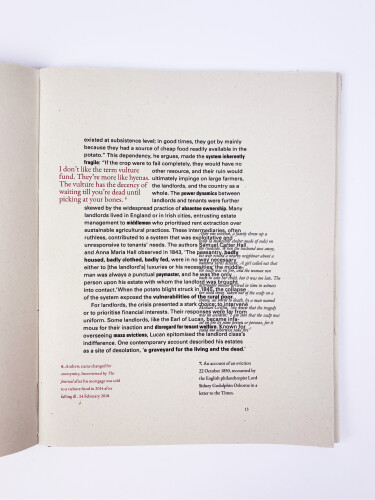 existed at subsistence level; in good times, they got by mainly
because they had a source of cheap food readily available in the
potato.” This dependency, he argues, made the system inherently
fragile: “If the crop were to fail completely, they would have no
other resource, and their ruin would
ultimately impinge on large farmers,
the landlords, and the country as a
whole. The power dynamics between
landlords and tenants were further
I don't like the term vulture
fund. They're more like hyenas.
The vulture has the decency of
waiting till you're dead until
picking at your bones. 6
skewed by the widespread practice of absentee ownership. Many
landlords lived in England or in Irish cities, entrusting estate
management to middlemen who prioritised rent extraction over
sustainable agricultural practices. These intermediaries, often
ruthless, contributed to a system that was exploitative and
unresponsive to tenants' needs. The authors Samuel Carter Hall
and Anna Maria Hall observed in 1843, 'The peasantry, badly
housed, badly clothed, badly fed, were in no way necessary
either to [the landlord's] luxuries or his necessities; the middle-
man was always a punctual paymaster, and he was the only
person upon his estate with whom the landlord was brought
into contact.' When the potato blight struck in 1845, the collapse
of the system exposed the vulnerabilities of the rural poor.
For landlords, the crisis presented a stark choice: to intervene
or to prioritise financial interests. Their responses were far from
uniform. Some landlords, like the Earl of Lucan, became infa-
mous for their inaction and disregard for tenant welfare. Known for
overseeing mass evictions, Lucan epitomised the landlord class's
indifference. One contemporary account described his estates
as a site of desolation, 'a graveyard for the living and the dead.'
6. Andrew, name changed for
anonymity. Interviewed by The
Journal after his mortgage was sold
to a vulture fund in 2014 after
falling ill. 24 February 2018.
7. An account of an eviction
22 October 1850, recounted by
the English philanthropist Lord
Sidney Godolphin Osborne in a
letter to the Times.
13